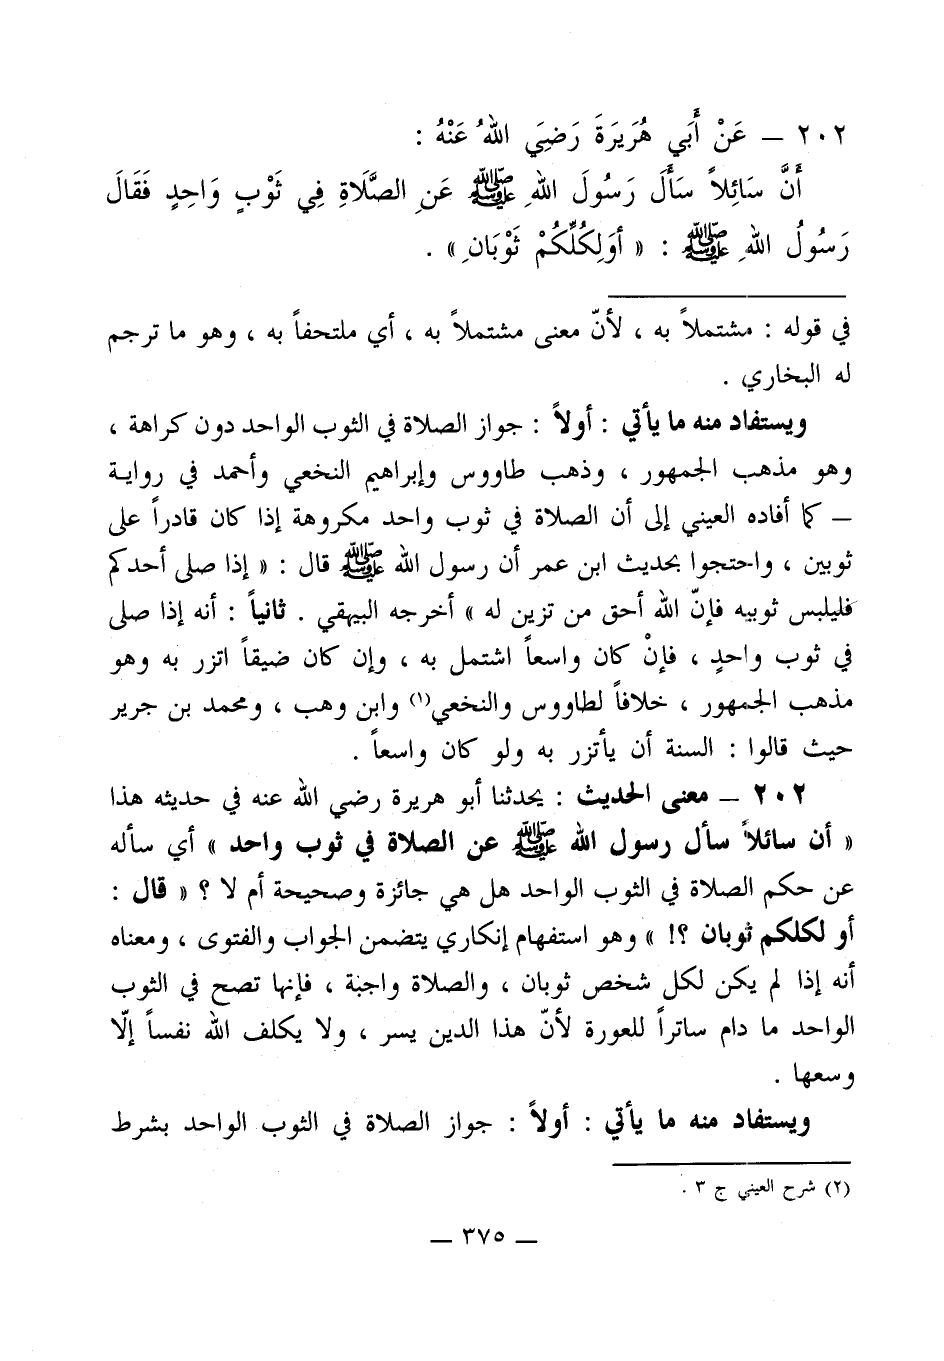 ٢٠٢ – عَنْ أَبي هُرَيرَةَ رَضِيَ اللهُ عَنْهُ :
أَنَّ سَائِلاً سَأَلَ رَسُولَ اللهِ ﷺ عَنِ الصَّلَاةِ فِي ثَوْبٍ وَاحِدٍ فَقَالَ
رَسُولُ اللهِ ﷺ : « أوَلِكُلِّكُمْ ثَوْبَانِ » .
في قوله : مشتملاً به ، لأنّ معنى مشتملاً به ، أي ملتحفاً به ، وهو ما ترجم
له البخاري .
ويستفاد منه ما يأتي : أولاً : جواز الصلاة في الثوب الواحد دون كراهة ،
وهو مذهب الجمهور ، وذهب طاووس وإبراهيم النخعي وأحمد في رواية
– كما أفاده العيني إلى أن الصلاة في ثوب واحد مكروهة إذا كان قادراً على
ثوبين ، واحتجوا بحديث ابن عمر أن رسول الله ﷺ قال : « إذا صلى أحدكم
فليلبس ثوبيه فإنّ الله أحق من تزين له » أخرجه البيهقي . ثانياً : أنه إذا صلى
في ثوب واحدٍ ، فإنْ كان واسعاً اشتمل به ، وإن كان ضيقاً اتزر به وهو
مذهب الجمهور ، خلافاً لطاووس والنخعي(١) وابن وهب ، ومحمد بن جرير
حيث قالوا : السنة أن يأتزر به ولو كان واسعاً .
٢٠٢ – معنى الحديث : يحدثنا أبو هريرة رضي الله عنه في حديثه هذا
« أن سائلاً سأل رسول الله ﷺ عن الصلاة في ثوب واحد » أي سأله
عن حكم الصلاة في الثوب الواحد هل هي جائزة وصحيحة أم لا ؟ « قال :
أو لكلكم ثوبان ؟! » وهو استفهام إنكاري يتضمن الجواب والفتوى ، ومعناه
أنه إذا لم يكن لكل شخص ثوبان ، والصلاة واجبة ، فإنها تصح في الثوب
الواحد ما دام ساتراً للعورة لأنّ هذا الدين يسر ، ولا يكلف الله نفساً إلّا
وسعها .
ويستفاد منه ما يأتي : أولاً : جواز الصلاة في الثوب الواحد بشرط
(٢) شرح العيني ج ٣ .
– ٣٧٥ –